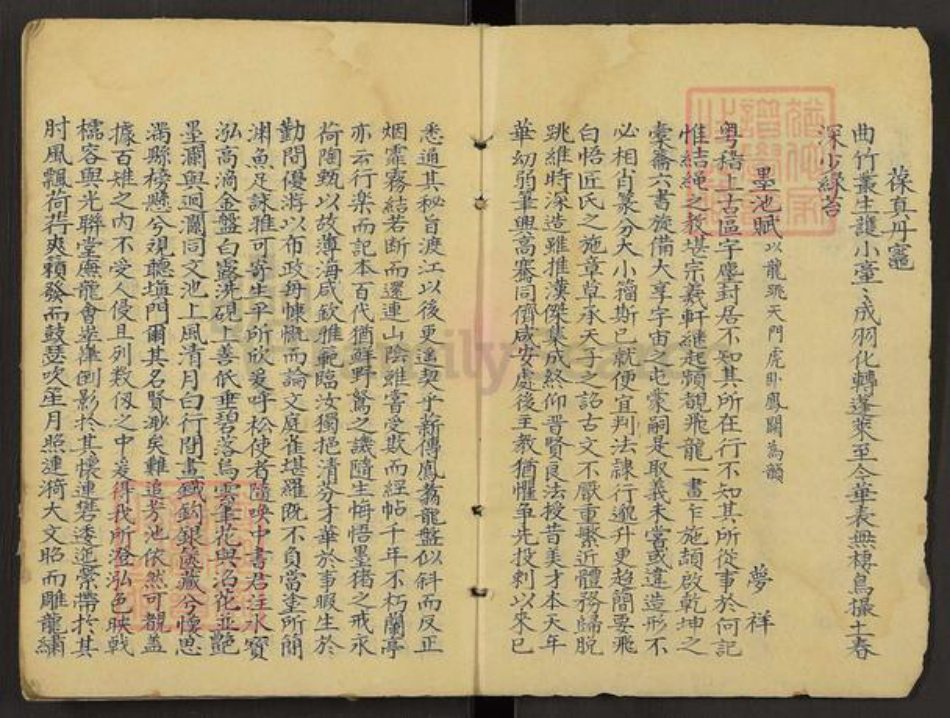 葆真丹竈
曲竹叢生護小堂〻成羽化轉蓬萊至今華表無棲鳥撮土春
深少綠苔
墨池賦以龍跳天門虎卧鳳閣為韻 夢祥
粤稽上古區宇塵封居不知其所在行不知其所從事於何記
惟結繩之教堪宗羲軒繼起頻覩飛龍一畫乍施頡啟乾坤之
橐籥六書旋備大享宇宙之屯蒙嗣是取義未嘗或違造形不
必相肖篆分大小籀斯已就便宜判法隸行邈升更趨簡要飛
白悟匠氏之施章草承天子之詔古文不厭重繁近體務歸脫
跳維時深造雖推漢傑集成終仰晋賢良法授昔美才本天年
華幼弱筆興高騫同儕咸安處後王教猶懼争先投刺以來已
悉通其秘旨渡江以後更遙契乎新傳鳳翥龍盤似斜而反正
烟霏霧結若斷而還連山陰雖嘗受欺而經帖千年不朽蘭亭
亦云行楽而記本百代猶鮮野鶩之譏隨生悔悟墨猪之戒永
荷陶甄以故薄海咸欽雅範臨汝獨挹清芬才華於事暇生於
勤問優游以布政每慷慨而論文庭雀堪羅既不負當塗所簡
淵魚足詠雅可寄生平所欣爰呼松使者隨喚中書君注水寳
泓高滴金盤白露洗硯上善低垂碧落烏雲筆花與浴花並艷
墨瀾與迴瀾同文池上風清月白行間畫鐵鈎銀篋藏兮懷思
濁縣榜懸兮視聽塩門爾其名賢渺矣難追芳池依然可覩蓋
據百雉之內不受人侵且列数仭之中爰得我所澄泓色映戟
檽容與光聯堂廡龍會峯落倒影於其懷連礬逶迤縈帶於其
肘風飄荷荇爽籟發而鼓瑟吹笙月照漣漪大文昭而雕龍繡